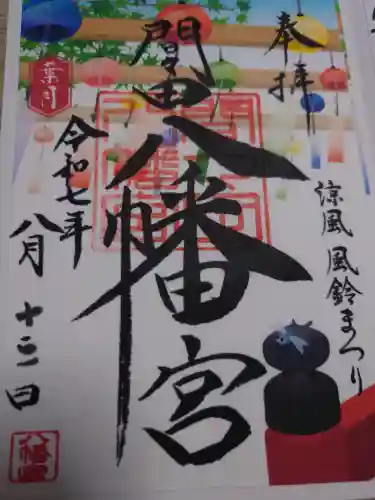 奉拝
涼風 風鈴まつり
間々田八幡宮
葉月
令和七年
八月十二日